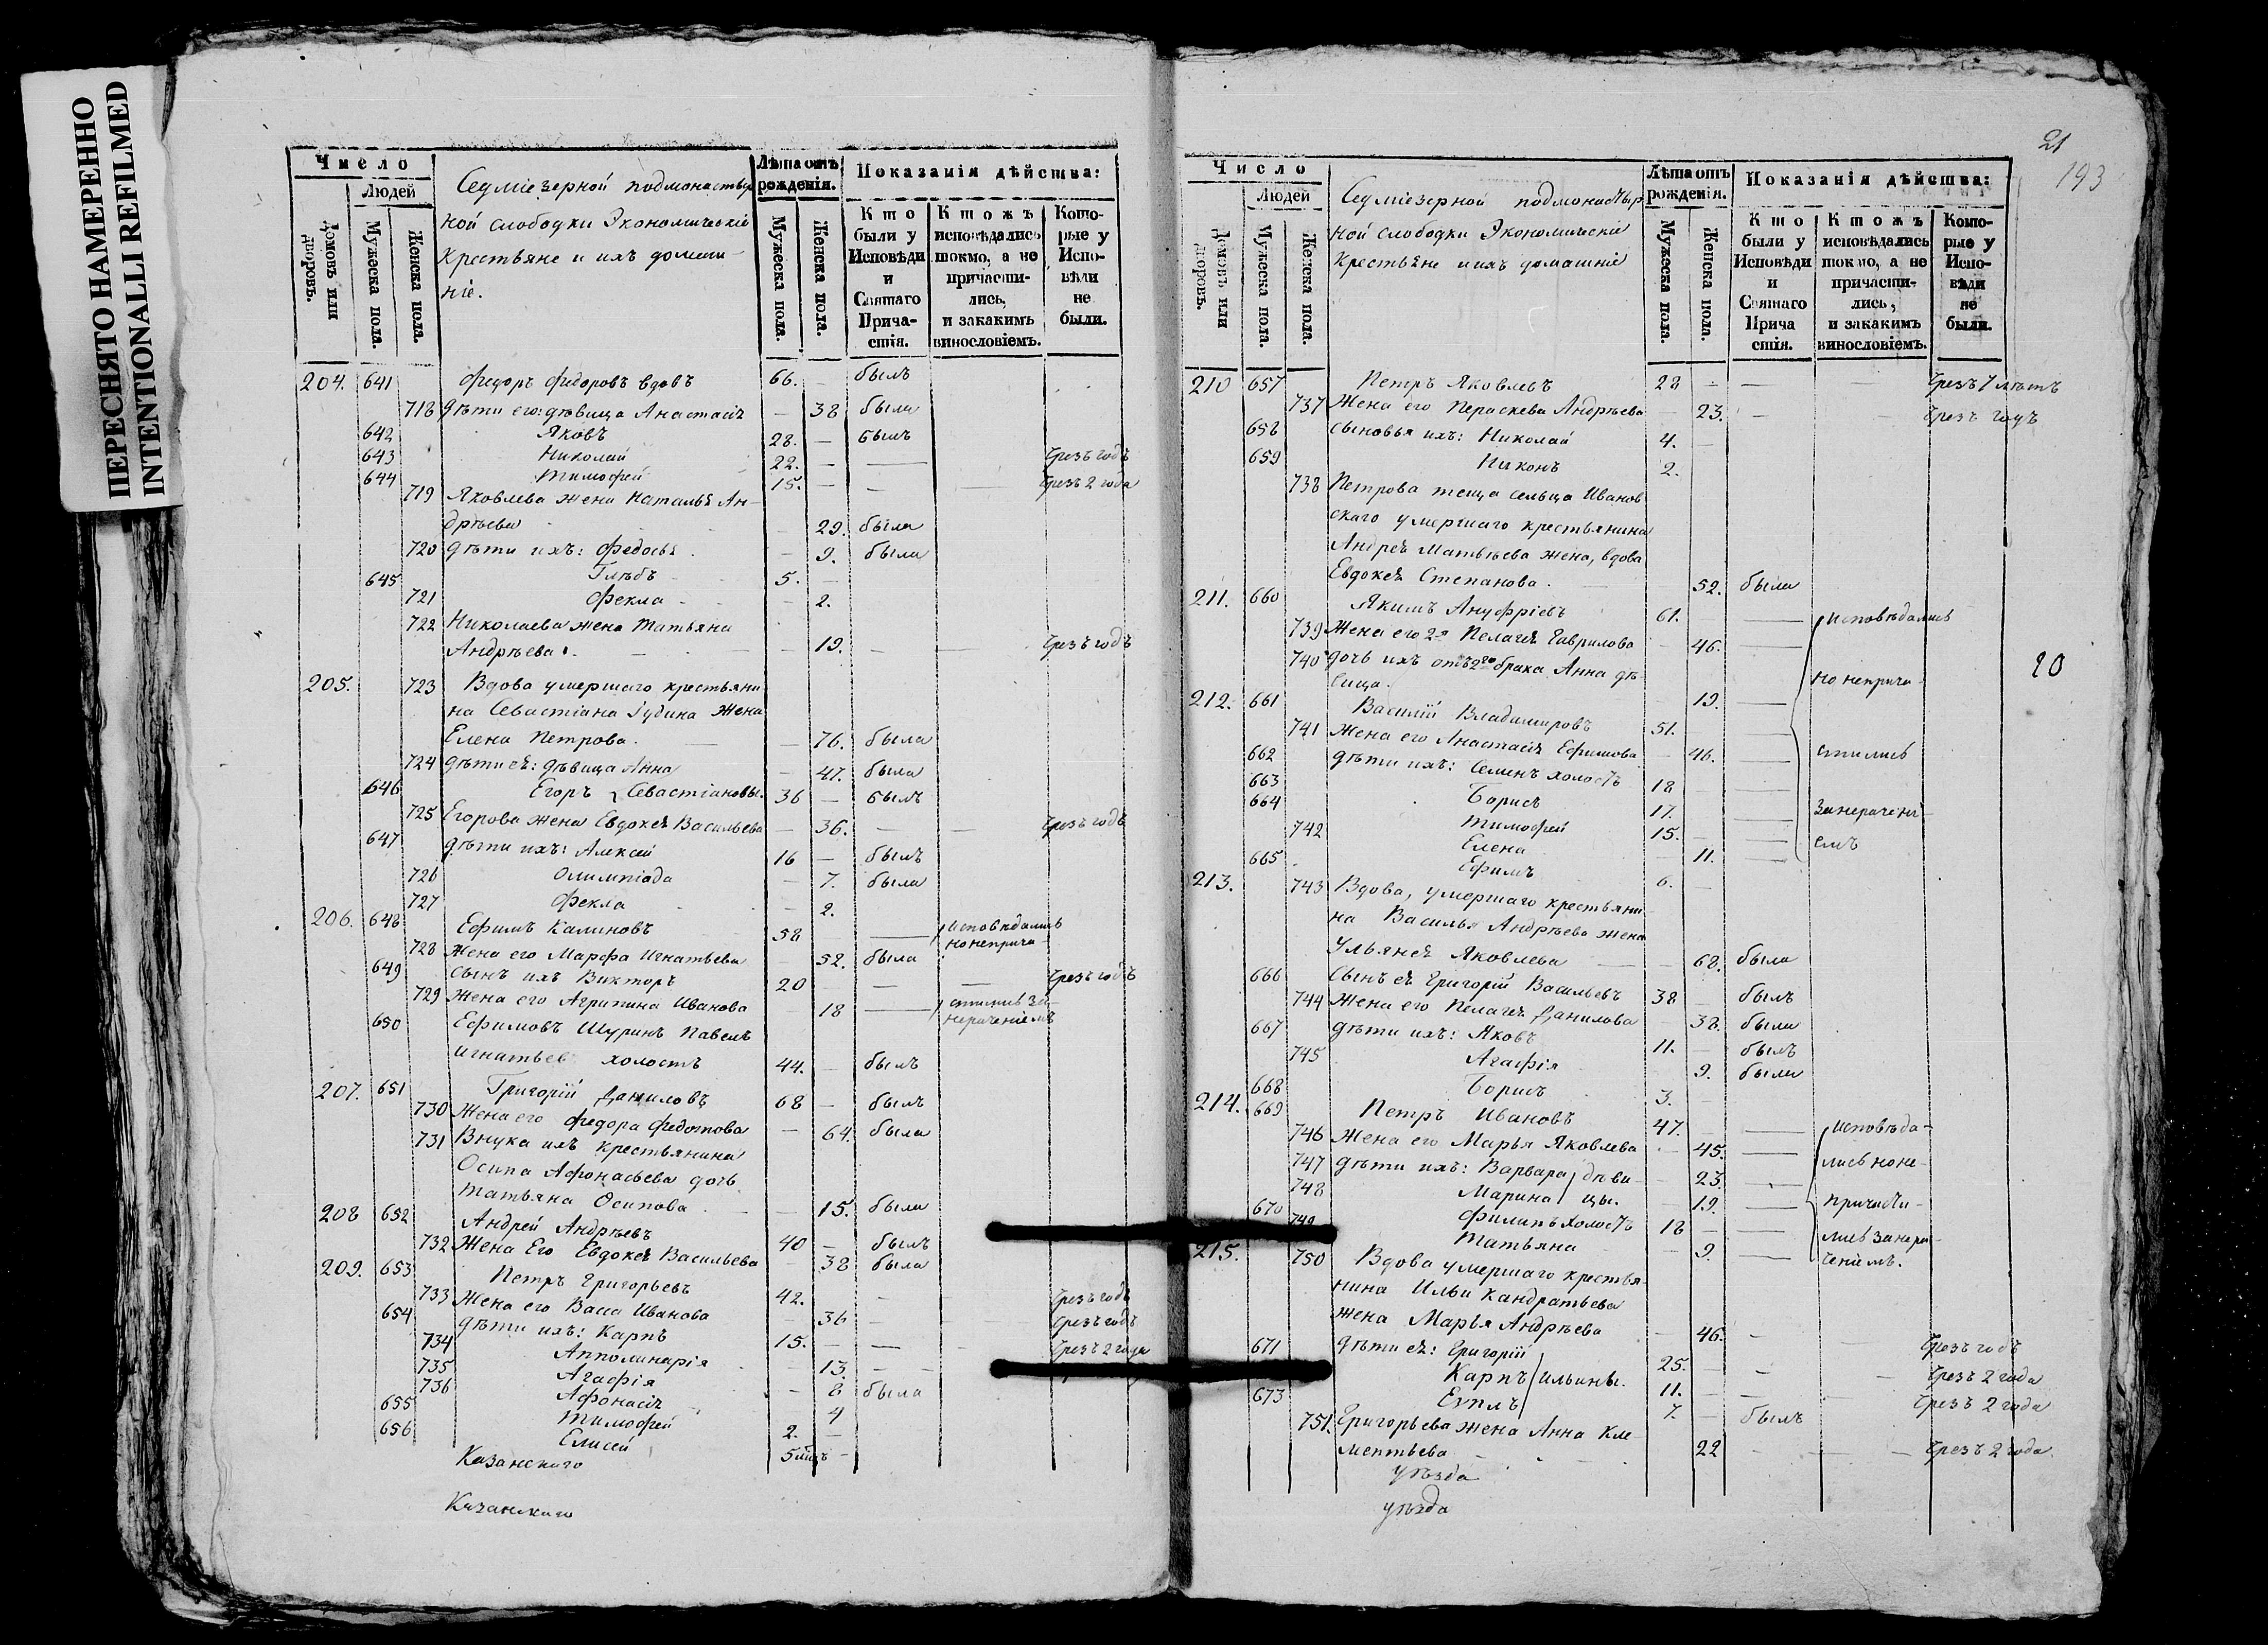 ПЕРЕСНЯТО НАМЕРЕННО
INTENTIONALLI REFILMED
Число
Людей
Домовъ или дворовъ.
Мужеска пола.
Женска пола.
Седміезерной подмонастыр
ной слободки Экономическіе
Крестьяне и ихъ домаш-
ніе.
Лѣта отъ рожденія.
Мужеска пола.
Женска пола.
Показанія дѣйства:
Кто были у Исповѣди и Святаго Прича-стія.
Ктожъ исповѣдались токмо, а не причасти-лись, и закакимъ винословіемъ.
Кото-рые у Испо-вѣди не были.
204. 641 Федоръ Федоровъ вдовъ 66. — былъ
718 дѣти его: дѣвица Анастасія — 38 была
642 Яковъ 28. — былъ
643 Николай 22. — — Чрезъ годъ
644 Тимофей 15. — — — Чрезъ 2 года
719 Яковлева жена Наталья Ан-
дрѣева — 29. была
720 дѣти ихъ: Федосья — 9. была
645 Глѣбъ 5. —
721 Фекла — 2.
722 Николаева жена Татьяна
Андрѣева. — 19. — — Чрезъ годъ
205. 723 Вдова умершаго крестьяни
на Севастіана Гудина жена
Елена Петрова. — 76. была
724 дѣти ея: дѣвица Анна — 47. была
646 Егоръ } Севастіановы. 36 — былъ
725 Егорова жена Евдокея Васильева — 36. — — Чрезъ годъ
647 дѣти ихъ: Алексей 16 — былъ
726 Олимпіада — 7. была
727 Фекла — 2.
206. 648 Ефимъ Калиновъ 58 — исповѣдались
но неприча-
728 Жена его Марфа Игнатьева — 52. была
649 сынъ ихъ Викторъ 20 — — — Чрезъ годъ
729 Жена его Агрипина Иванова — 18 — стились за
нераченіемъ
650 Ефимовъ Шуринъ Павелъ
Игнатьев холостъ 44. — былъ
207. 651 Григорій Даниловъ 68 — былъ
730 Жена его Федора Федотова — 64. была
731 Внука ихъ крестьянина
Осипа Афонасьева дочь
Татьяна Осипова — 15. была
208 652 Андрей Андрѣевъ 40 — былъ
732 Жена Его Евдокея Васильева — 38 была
209. 653 Петръ Григорьевъ 42. — — Чрезъ годъ
733 Жена его Васса Иванова — 36 — — Чрезъ годъ
654 дѣти ихъ: Карпъ 15. — — — Чрезъ 2 года
734 Апполинарія — 13. — —
735 Агафія — 8 была
736 Афонасія — 4
655 Тимофей 2. —
656 Елисей 5 —
Казанскаго
Казанскаго
21
193
Число
Людей
Домовъ или дворовъ.
Мужеска пола.
Женска пола.
Седміезерной подмонастыр
ной слободки Экономическіе
Крестьяне и ихъ домашніе
Лѣта отъ рожденія.
Мужеска пола.
Женска пола.
Показанія дѣйства:
Кто были у Исповѣди и Святаго Прича стія.
Ктожъ исповѣдались токмо, а не причасти-лись, и закакимъ винословіемъ.
Кото-рые у Испо-вѣди не были.
210 657 Петръ Яковлевъ 28 — — — Чрезъ 7 лѣтъ
737 Жена его Параскева Андрѣева — 23. — — Чрезъ годъ
658 сыновья ихъ: Николай 4. —
659 Никонъ 2.
738 Петрова теща сельца Иванов
скаго умершаго крестьянина
Андрея Матвѣева жена, вдова
Евдокея Степанова. — 52. была
211. 660 Якимъ Ануфріевъ 61. — — исповѣдались
739 Жена его 2я Пелагея Гаврилова — 46. —
740 дочь ихъ отъ 2го брака Анна дѣ-
вица. 19. — но неприча-
212. 661 Василій Владимировъ 51.
741 Жена его Анастасія Ефимова — 46. — стились
662 дѣти ихъ: Семенъ холостъ 18 —
663 Борисъ 17. — за нерачені-
664 Тимофей 15. — —
742 Елена — 11. — емъ
665 Ефимъ 6. —
213. 743 Вдова, умершаго крестьяни-
на Василья Андрѣева жена
Ульянея Яковлева — 68. была
666 Сынъ ея Григорій Васильевъ 38 — былъ
744 Жена его Пелагея Данилова — 38. была
667 дѣти ихъ: Яковъ 11. — былъ
745 Агафія — 9. была
668 Борисъ 3. —
214. 669 Петръ Ивановъ 47. — — исповѣда-
746 Жена его Марья Яковлева — 45. —
747 дѣти ихъ: Варвара } дѣви- — 23. — лись но не-
748 Марина } цы. — 19. — причасти-
670 Филипъ холостъ 18 — —
749 Татьяна — 9. — лись за нера-
ченіемъ.
215. 750 Вдова умершаго крестья-
нина Ильи Кандратьева
жена Марья Андрѣева — 46. — — Чрезъ годъ
671 дѣти ея: Григорій 25. — — Чрезъ 2 года
Карпъ } Ильины. 11. — — Чрезъ 2 года
673 Евплъ 7. — былъ
751. Григорьева жена Анна Кле-
ментьева — 22 — — Чрезъ 2 года.
уѣзда
уѣзда
20